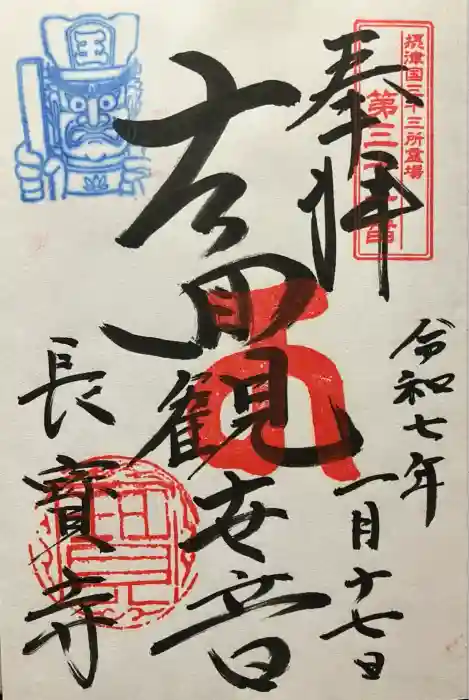 奉拝
摂津国三十三所霊場
第三十番
十一面観世音
長寶寺
令和七年
一月十七日
王